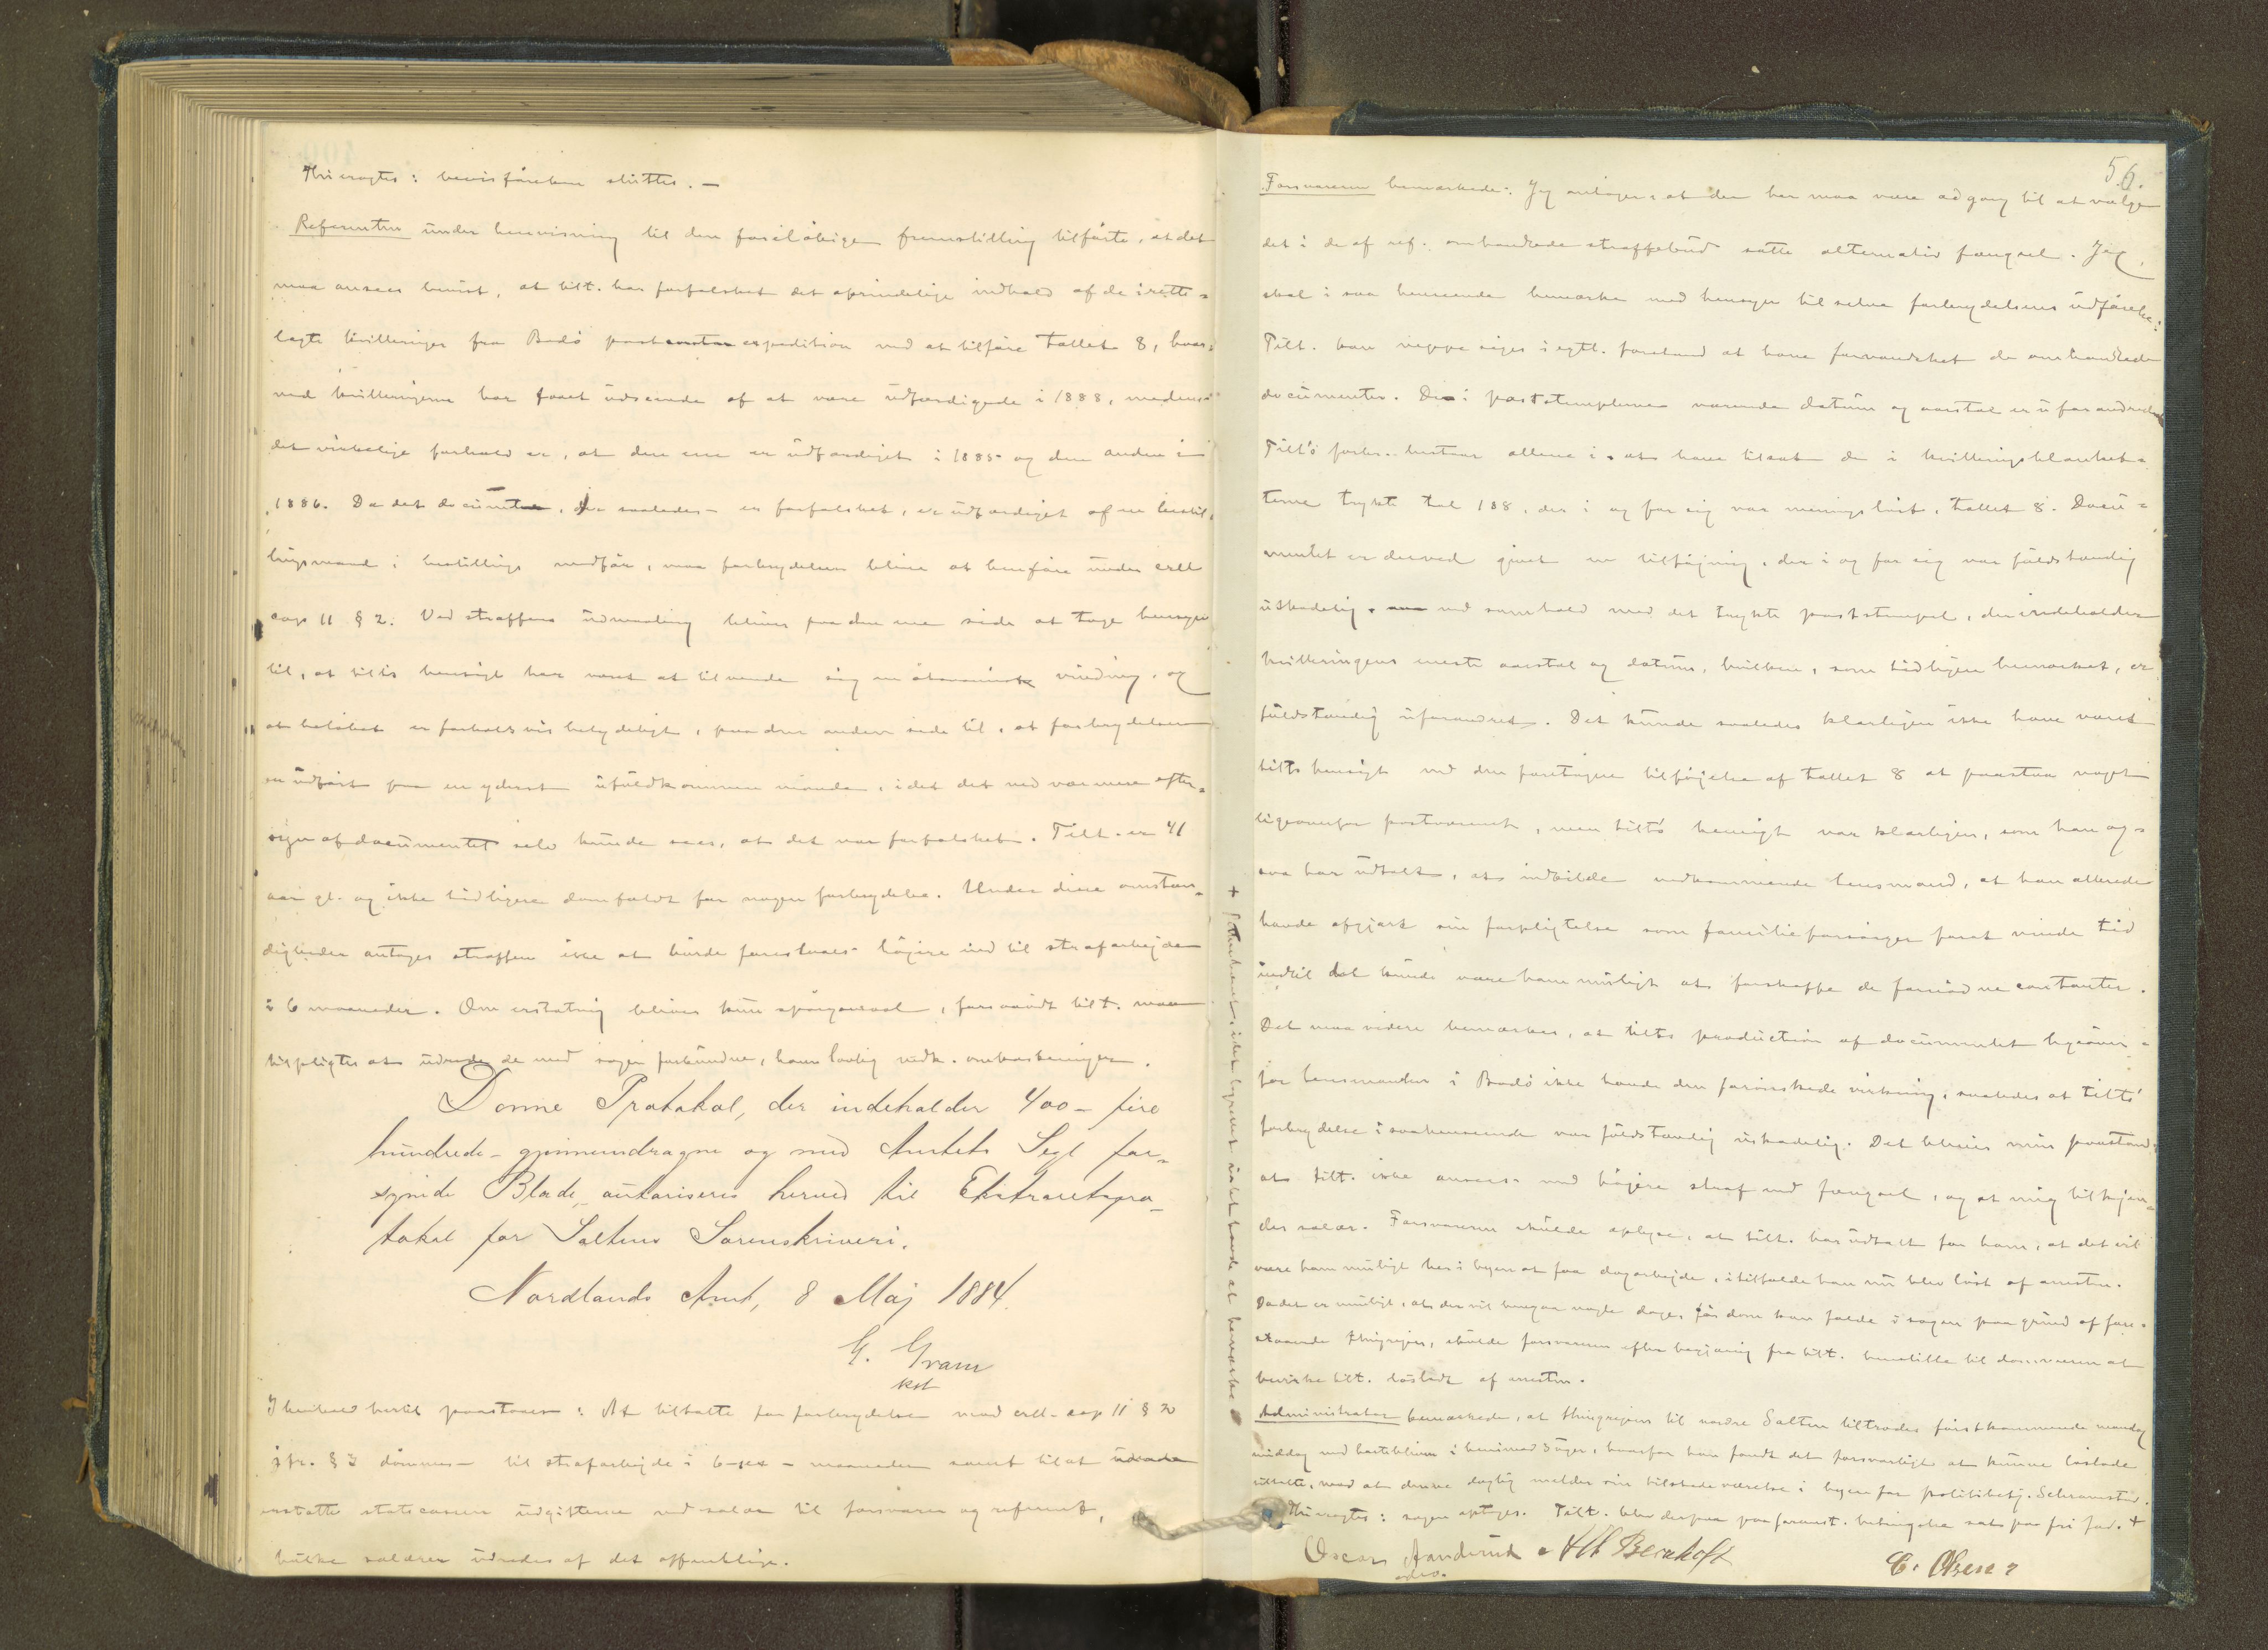 Thi eragtes: bevisførelsen sluttes. —
Referenten under henvisning til den foreløbige fremstilling tilførte, at det
maa ansees bevist, at tilt. har forfalsket det oprindelige indhold af de irette-
lagte kvitteringer fra Bodø postexpedition ved at tilføie tallet 8, hvor-
ved kvitteringerne har faaet udseende af at være udfærdigede i 1888, medens
det virkelige forhold er, at den ene er udfærdiget i 1885 og den anden i
1886. Da det document, der saaledes er forfalsket, er udfærdiget af en bestil-
lingsmand i bestillings medfør, maa forbrydelsen blive at henføre under crll
cap 11 § 2. Ved straffens udmaaling bliver paa den ene side at tage hensyn
til, at tilts hensigt har været at tilvende sig en økonomisk vinding, og
at beløbet er forholdsvis betydeligt, paa den anden side til, at forbrydelsen
er udført paa en yderst ufuldkommen maade, idet det ved nærmere efter-
syn af documentet selv kunde sees, at det var forfalsket. Tilt. er 41
aar gl. og ikke tidligere domfældt for nogen forbrydelse. Under disse omstæn-
digheder antages straffen ikke at burde foreslaaes høiere end til strafarbejde
i 6 maaneder. Om erstatning bliver kun spørgsmaal, forsaavidt tilt. maa
tilpligtes at udrede de med sagen forbundne, ham lovlig vedk. omkostninger.
Denne Protokol, der indeholder 400 - fire
hundrede - gjennemdragne og med Amtets Segl for-
synede Blade, autoriseres herved til Ekstraretspro-
tokol for Saltens Sorenskriveri.
Nordlands Amt, 8 Maj 1884.
G. Gram
kst
I henhold hertil paastaaes: At tiltalte for forbrydelse mod crll. cap 11 § 2
jfr. § 3 dømmes til strafarbejde i 6 - sex - maaneder samt til at
erstatte statscassen udgifterne ved salær til forsvarer og referent,
hvilke salærer udredes af det offentlige.
56.
Forsvareren bemærkede: Jeg antager at der her maa være adgang til at vælge
det i de af ref. omhandlede straffebud satte alternativ fængsel. Jeg
skal i saa henseende bemærke med hensyn til selve forbrydelsens udførelse:
Tilt. kan neppe siges i egtl. forstand at have forvandsket de omhandlede
documenter. Det i poststemplerne værende datum og aarstal er uforandret.
Tilts forbr. bestaar allene i at have tilsat de i kvitteringsblanket-
terne trykte tal 188, der i og for sig var meningsløst, tallet 8. Docu-
mentet er derved givet en tilføining, der i og for sig var fuldstændig
uskadelig ved samhold med det trykte poststempel, der indeholder
kvitteringens eneste aarstal og datum, hvilken, som tidligere bemærket, er
fuldstændig uforandret. Det kunde saaledes klarligen ikke have været
tilts hensigt ved den foretagne tilføjelse af tallet 8 at paastaa noget
ligeoverfor postvæsenet, men tilts hensigt var klarligen, som han og-
saa har udtalt, at indbilde vedkommende lensmand, at han allerede
havde afgjort sin forpligtelse som familieforsørger foråt vinde tid
indtil det kunde være ham muligt at forskaffe de fornødne contanter.
Det maa videre bemærkes, at tilts production af documentet ligeover-
for lensmanden i Bodø ikke havde den forønskede virkning, saaledes at tilts
forbrydelse i saahenseende var fuldstændig uskadelig. Det bliver min paastand:
at tilt. ikke ansees med høiere straf end fængsel, og at mig tilkjen-
des salær. Forsvareren skulde oplyse, at tilt. har udtalt for ham, at det vil
være ham muligt her i byen at faa dagarbejde, i tilfælde han nu blev løst af arresten.
Da det er muligt, at der vil hengaa nogle dager før dom kan falde i sagen paa grund af fore-
staaende thingrejser, skulde forsvareren efter begjæring fra tilt. henstille til domsvæsenet at
bevirke tilt. løsladt af arresten.
Administrator bemærkede, at thingrejsen til nordre Salten tiltrædes førstkommende mandag
middag ved hvorfor han fandt det forsvarligt at kunne løslade
tiltalte, mod at denne daglig melder sin tilstedeværelse i byen for politibetj. Schrömsted.
Thi eragtes: sagen optages. Tilt. blev derpaa paa foranst. betingelse sat paa fri fod. +
+ idet lovretten intet havde at bemærke
Oscar
A H Bernhoft
C. Olsen